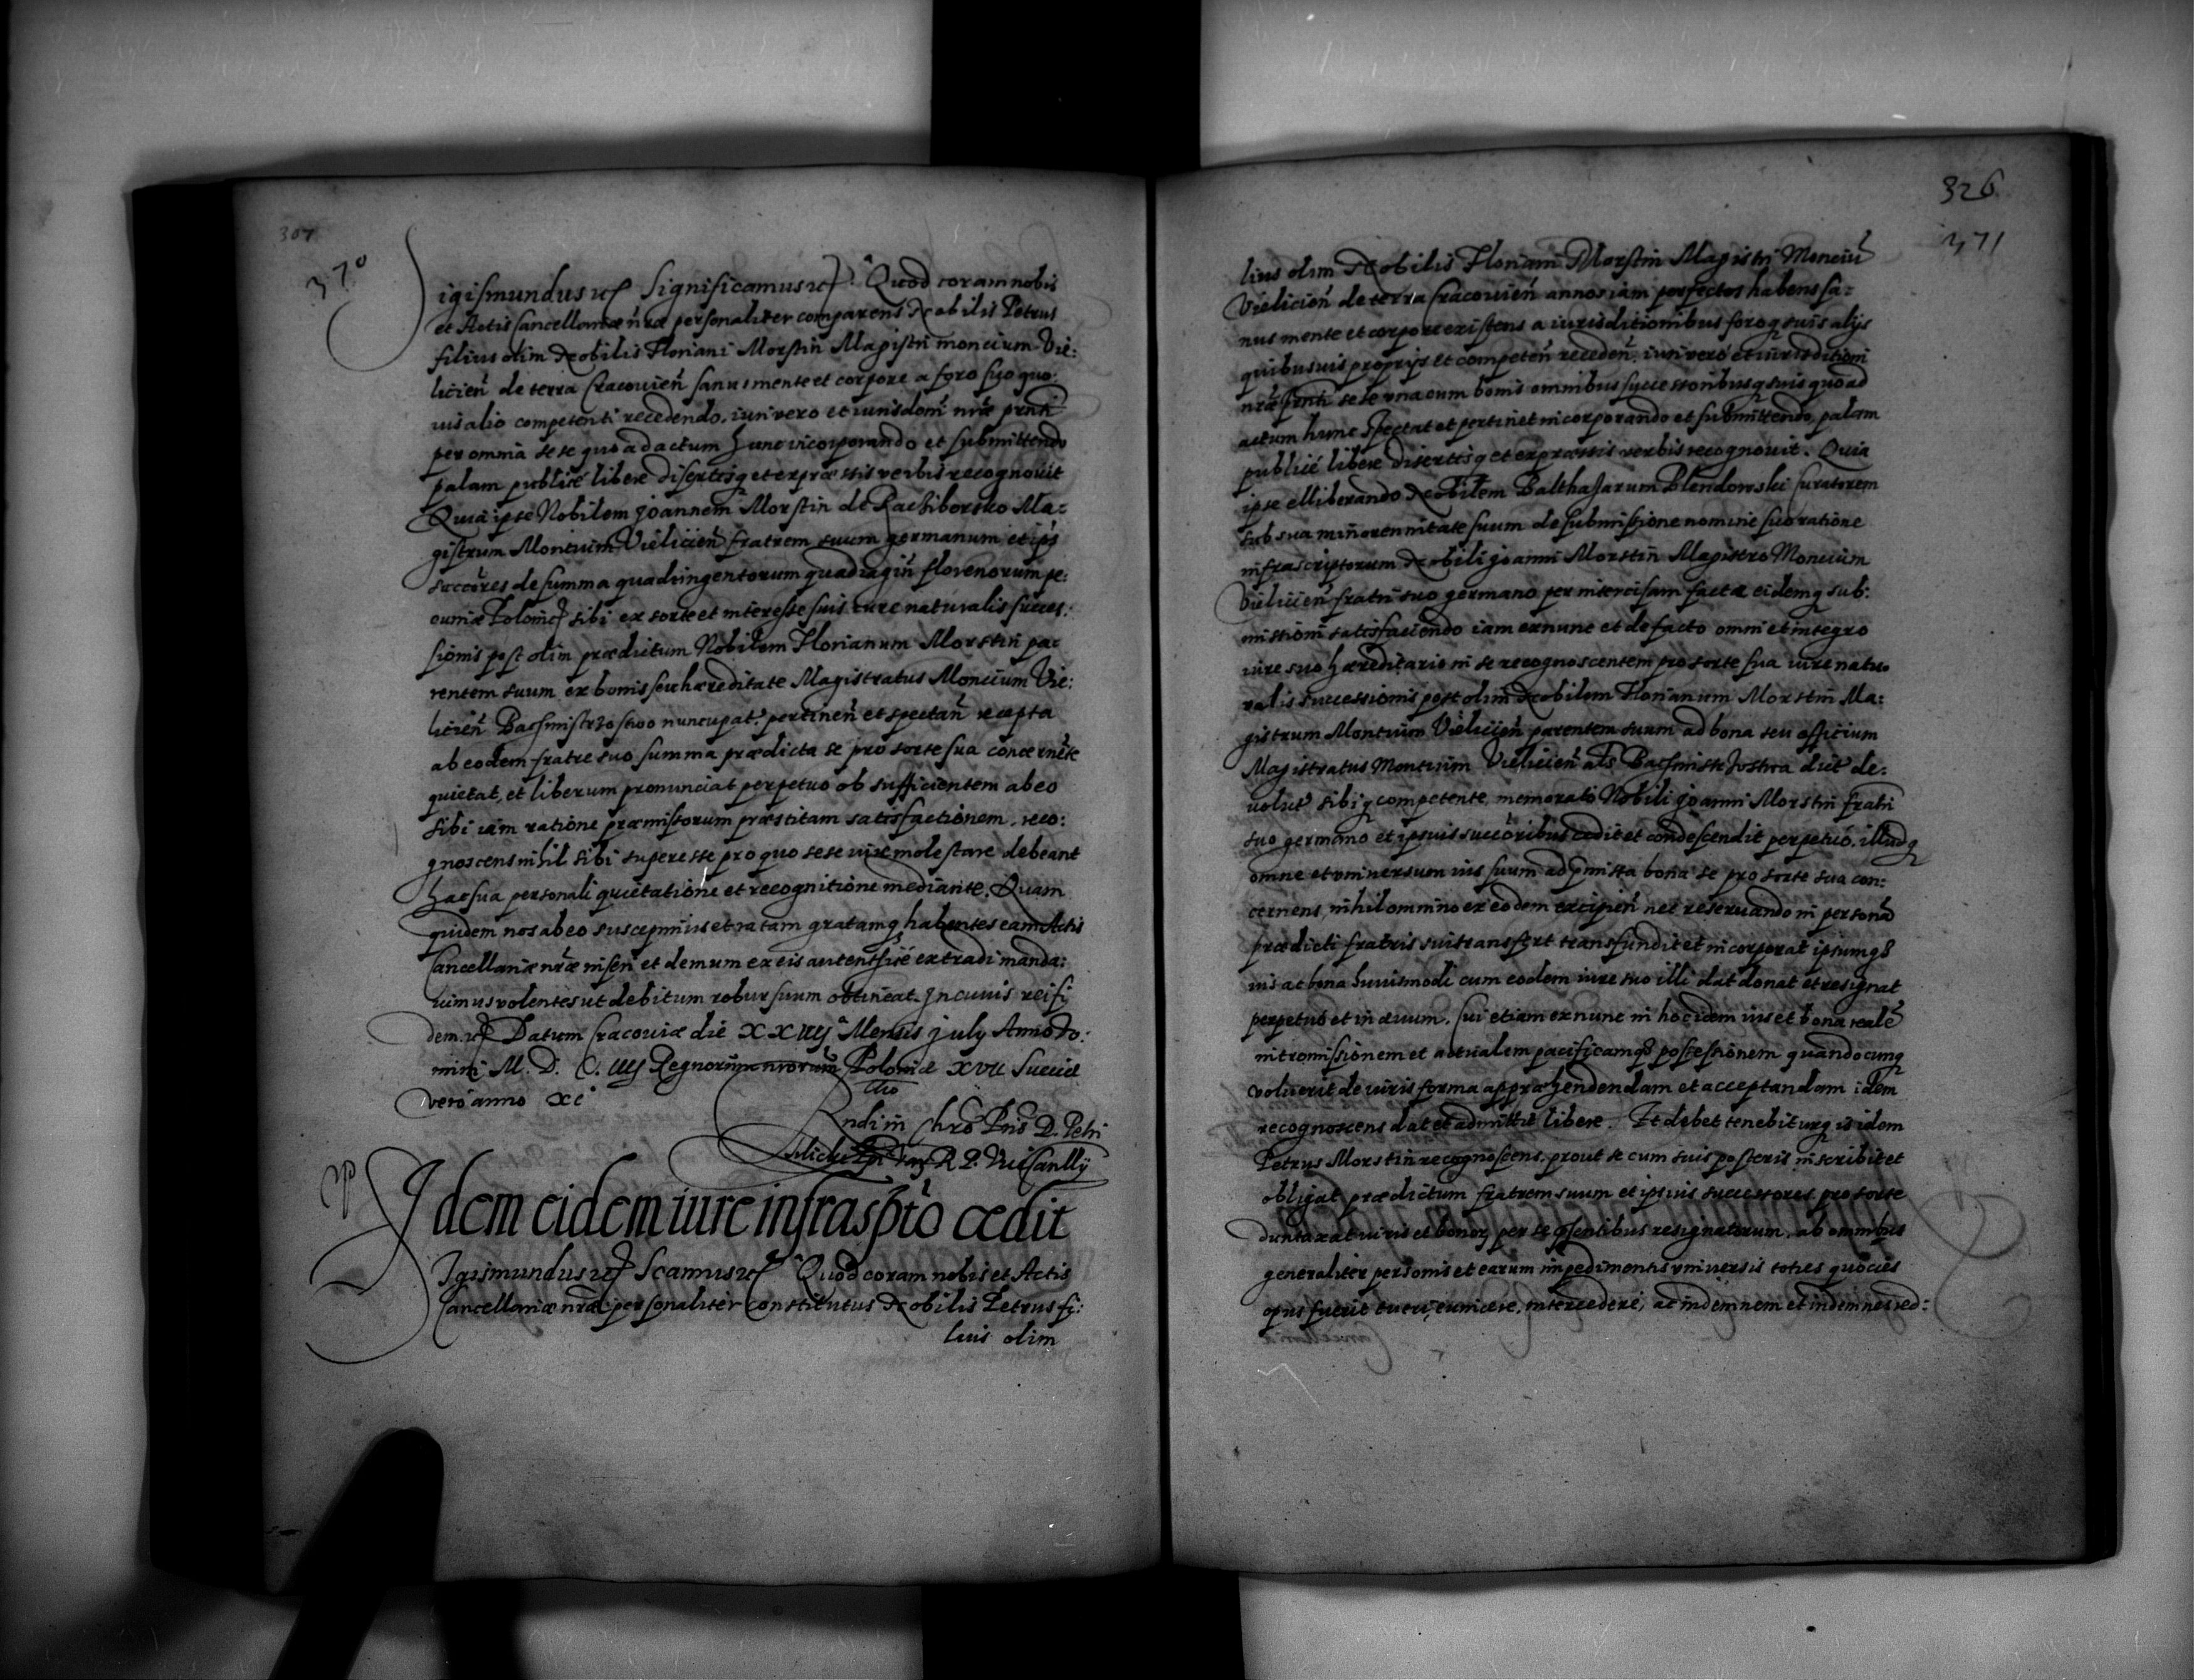 307
370
Sigismundus etc Significamus etc. Quod coram nobis
et Actis Cancellariæ nr̃æ personaliter comparens Nobilis Petrus
filius olim Nobilis Floriani Morstin Magistri moncium Vie:
licien̄ de terra Cracouien̄ sanus mente et corpore a foro suo quo:
uis alio competenti recedendo, iuri vero et iurisdom̄ nr̃æ pr̃nti
per omnia sese quo ad actum hunc incorporando et submittendo
palam publicè libere disertisq et expræssis verbis recognouit
Quia ipse Nobilem Joannem Morstin de Rachiborsko Ma:
gistrum Montium Vielicien̄ fratrem suum germanum et ips
succ̃ores de summa quadringentorum quadragin̄ florenorum pe:
cuniæ Polonicæ sibi ex sorte et interesse suis iure naturalis succes:
sionis post olim prædictum Nobilem Florianum Morstin pa:
rentem suum ex bonis seu hæreditate Magistratus Moncium Vie:
licien̄ Bachmistrzostwo nuncupat. pertinen̄ et spectan̄ recepta
ab eodem fratre suo summa prædicta se pro sorte sua concernēte
quietat, et liberum pronunciat perpetuo ob sufficientem ab eo
sibi iam ratione præmissorum præstitam satisfactionem, reco:
gnoscens nihil sibi superesse pro quo sese iure molestare debeant
hac sua personali quietatione et recognitione mediante. Quam
quidem nos ab eo suscepimus et ratam gratamq habentes eam Actis
Cancellariæ nr̃æ inseri et demum ex eis autenthicè extradi manda:
uimus volentes ut debitum robur suum obtineat. In cuius rei fi
dem. etc Datum Cracouiæ die XXiiij Mensis July Anno Do:
mini M. D. C. iiij Regnorum nrorum Poloniæ XVII Sueciæ
vero anno xi
Rndi in Chro Pris D. Petri
Tilicki R. P. Vicecanllij
Idem eidem iure infraspto cædit
Sigismundus etc Scamus etc Quod coram nobis et Actis
Cancellariæ nr̃æ personaliter constitutus Nobilis Petrus fi:
lius olim
326
371
lius olim Nobilis Floriani Morstin Magistri Monciū
Vielicien̄ de terra Cracouien̄ annos iam perfectos habens sa:
nus mente et corpore existens a iurisditionibus foroq suis alijs
quibusuis proprijs et competen̄ receden̄, iuri vero et iurisditioni
nr̃æ pr̃nti sese vna cum bonis omnibus successoribusq suis quo ad
actum hunc spectat et pertinet incorporando et submittendo, palam
publicè libere disertisq et expræssis verbis recognouit. Quia
ipse elliberando Nobilem Balthasarum Blendowski Curatorem
sub sua minorennitate suum de submissione nomine suo ratione
infrascriptorum Nobili Joanni Morstin Magistro Moncium
Vielicien̄ fratri suo germano per intercisam factæ eidemq sub:
missioni satisfaciendo iam ex nunc et de facto omni et integro
iure suo hæreditario in se recognoscentem pro sorte sua iure natu:
ralis successionis post olim Nobilem Florianum Morstin Ma:
gistrum Montium Vielicien̄ parentem suum ad bona seu officium
Magistratus Montium Vielicien̄ als Bachmistrzostwa dict de:
volut sibiq competente, memorato Nobili Joanni Morstin fratri
suo germano et ipsius succ̃oribus cedit et condescendit perpetuò, illudq
omne et vniuersum ius suum ad p̃missa bona se pro sorte sua con:
cernens, nihil omnino ex eodem excipien̄ nec reseruando in personā
prædicti fratris sui transfert transfundit et incorporat ipsumq
ius ac bona huiusmodi cum eodem iure suo illi dat donat et resignat
perpetuò et in æuum. Cui etiam ex nunc in hoc idem ius et bona realē
intromissionem et actualem pacificamq possessionem quandocunq
voluerit de iuris forma appræhendendam et acceptandam idem
recognoscens dat et admittit libere. Et debet tenebiturq is idem
Petrus Morstin recognoscens, prout se cum suis posteris inscribit et
obligat prædictum fratrem suum et ipsius successores pro sorte
duntaxat iuris et bonor per se p̃sentibus resignatorum, ab omnibus
generaliter personis et earum impedimentis vniuersis toties quocies
opus fuerit tueri, euincere, intercedere, ac indemnem et indemnes red: